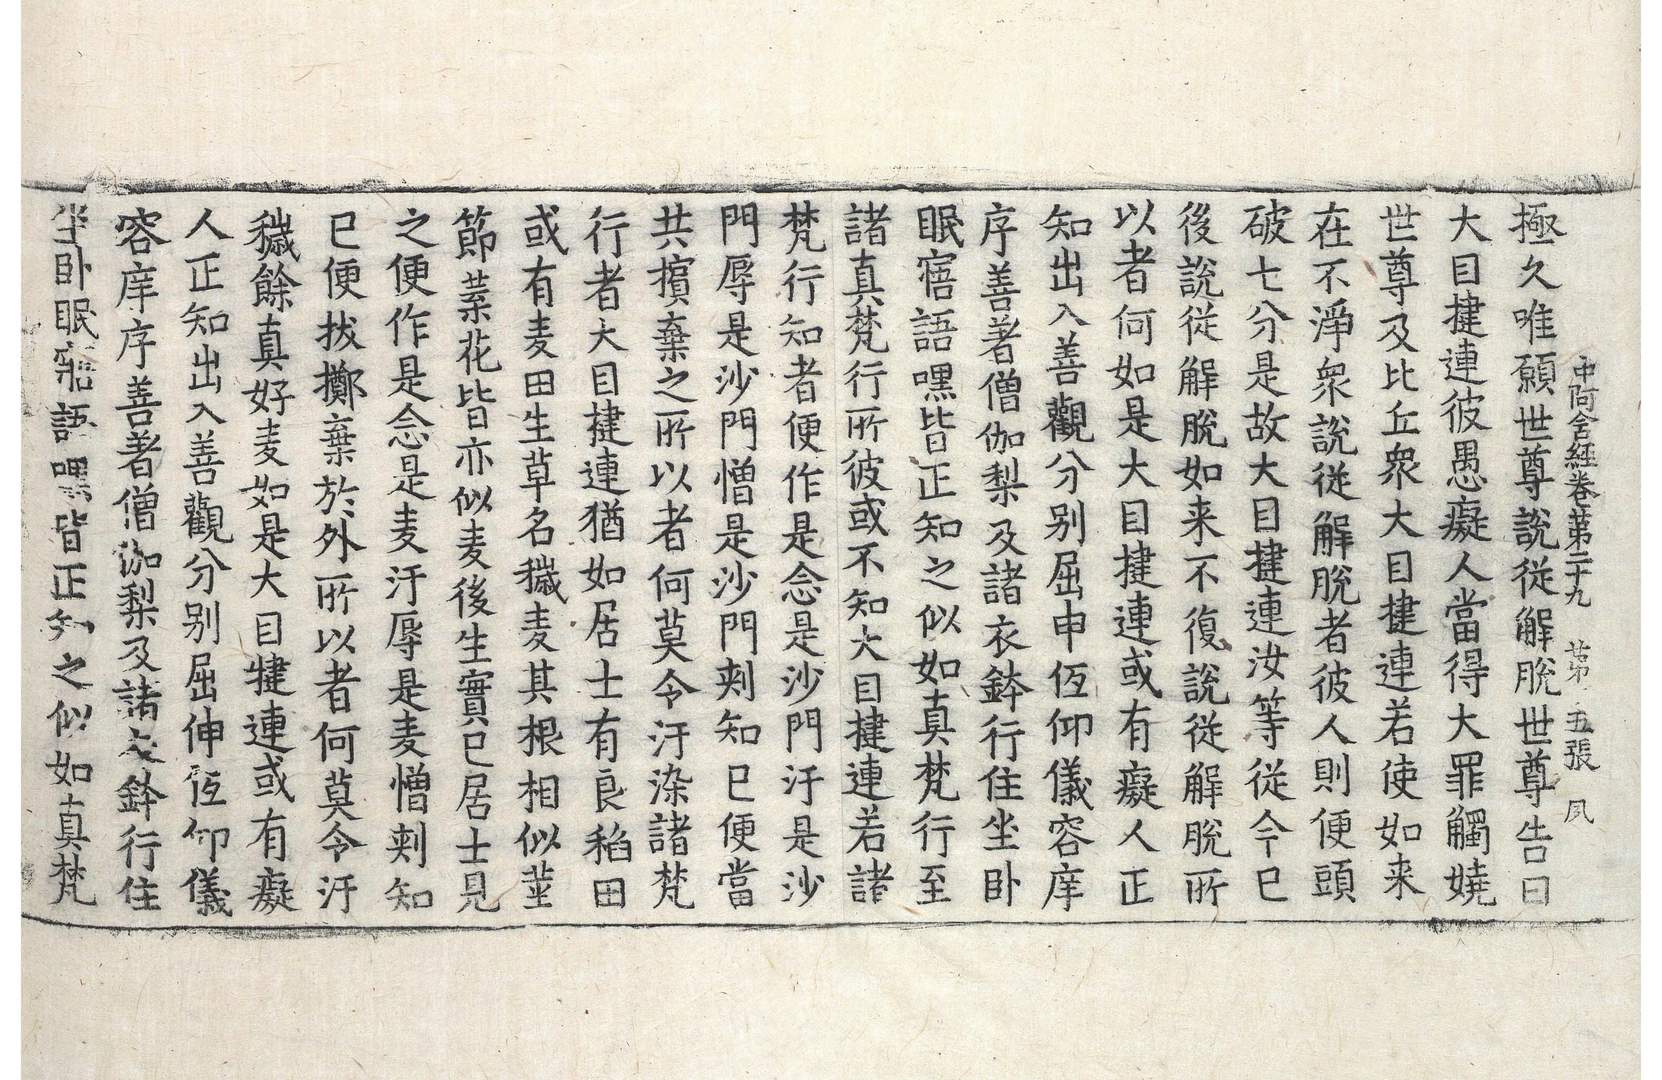 中阿含經卷第二十九 第五張 夙
極久唯願世尊說從解脫世尊告曰
大目揵連彼愚癡人當得大罪觸嬈
世尊及比丘衆大目揵連若使如来
在不淨衆說從解脫者彼人則便頭
破七分是故大目揵連汝等從今已
後說從解脫如来不復說從解脫所
以者何如是大目揵連或有癡人正
知出入善觀分别屈申低仰儀容庠
序善著僧伽梨及諸衣鉢行住坐卧
眠寤語嘿皆正知之似如真梵行至
諸真梵行所彼或不知大目揵連若諸
梵行知者便作是念是沙門汙是沙
門辱是沙門憎是沙門刺知已便當
共擯棄之所以者何莫令汙染諸梵
行者大目揵連猶如居士有良稻田
或有麦田生草名穢麦其根相似莖
節葉花皆亦似麦後生實已居士見
之便作是念是麦汙辱是麦憎刺知
已便拔擲棄於外所以者何莫令汙
穢餘真好麦如是大目揵連或有癡
人正知出入善觀分别屈伸低仰儀
容庠序善著僧伽梨及諸衣鉢行住
坐卧眠寤語嘿皆正知之似如真梵